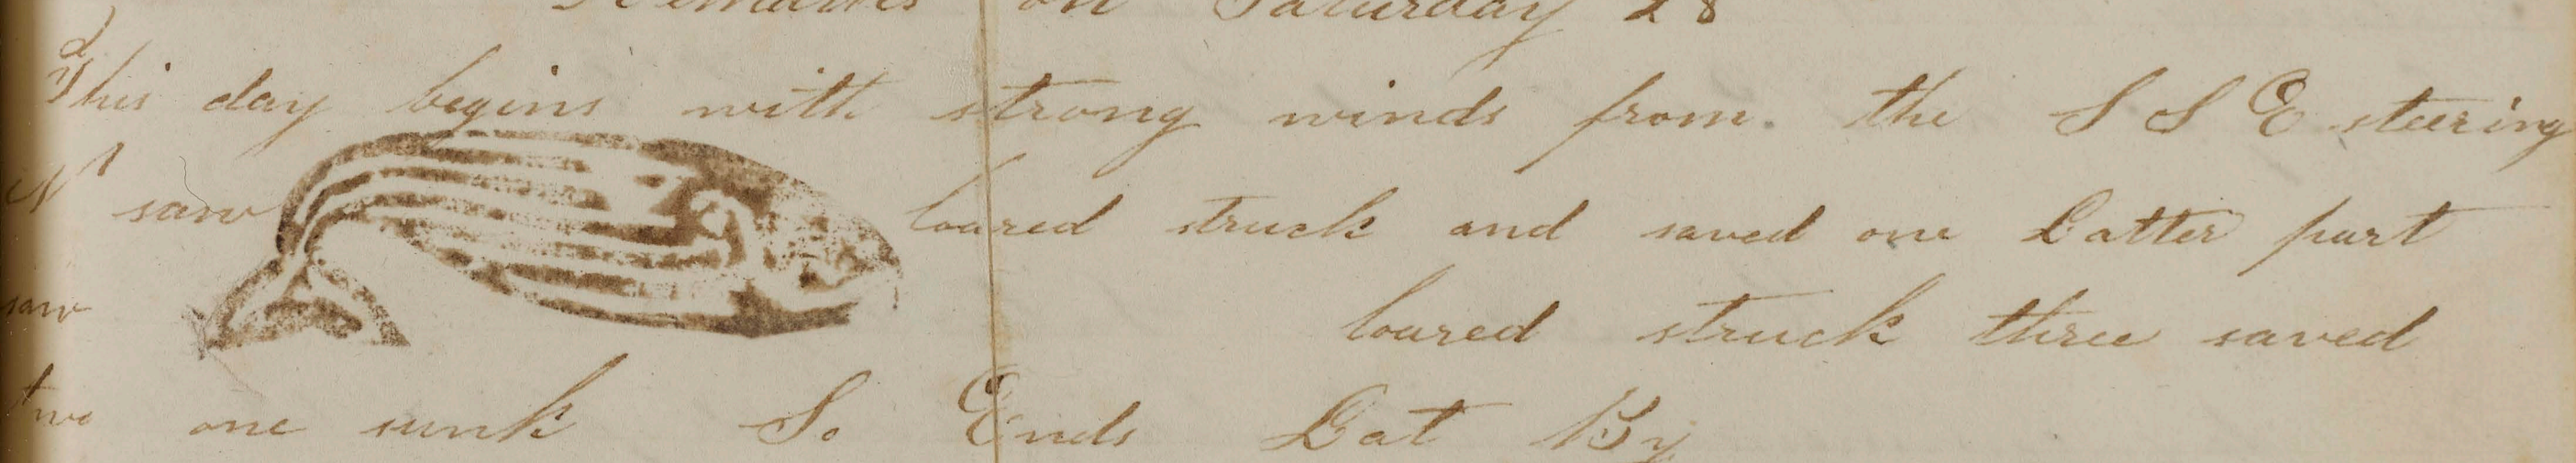 Remarks on Saturday 28
This day begins with strong winds from the S S E steering
N saw loared struck and saved one Latter part
saw loared struck three saved
two one sunk So Ends Lat By